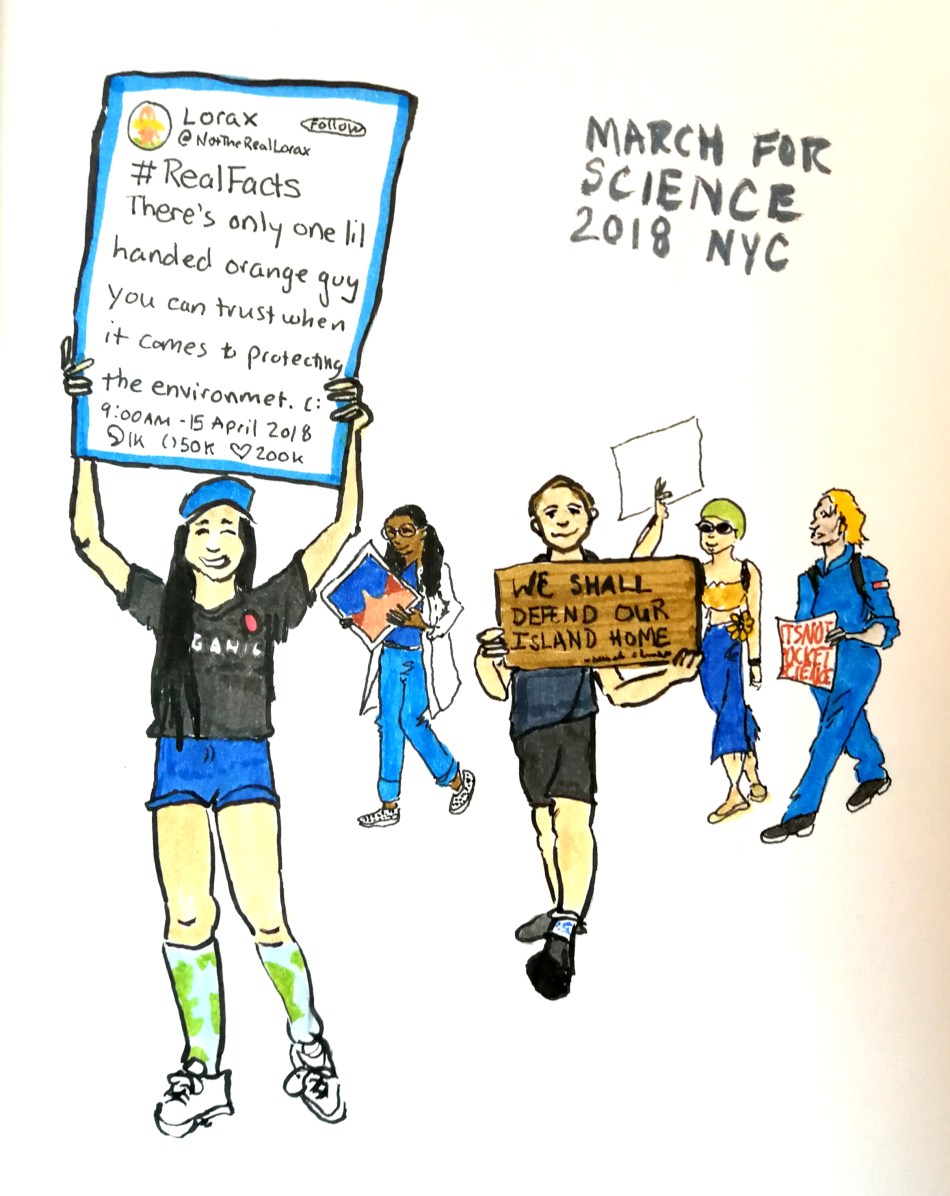 Lorax
Follow
@NotTheRealLorax
#RealFacts
There's only one lil
handed orange guy
you can trust when
it comes to protecting
the environmet. c:
9:00AM - 15 April 2018
1K 50K ♡ 200K
MARCH FOR
SCIENCE
2018 NYC
GANIC
WE SHALL
DEFEND OUR
ISLAND HOME
TSNOT
OCKET
SCIENCE